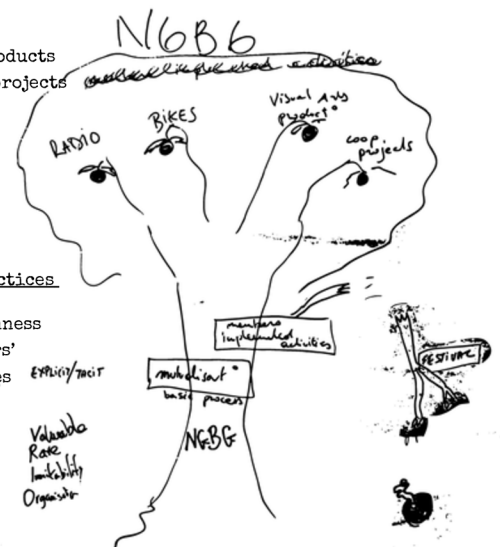 NGBG
oducts
rojects
RADIO
BIKES
Visual Arts
product°
coop
projects
ctices
nness
rs'
es
EXPLICIT/TACIT
members
implemented
activities
FESTIVAL
mutualisat°
basic process
NGBG
Valuable
Rare
Imitability
Organisation